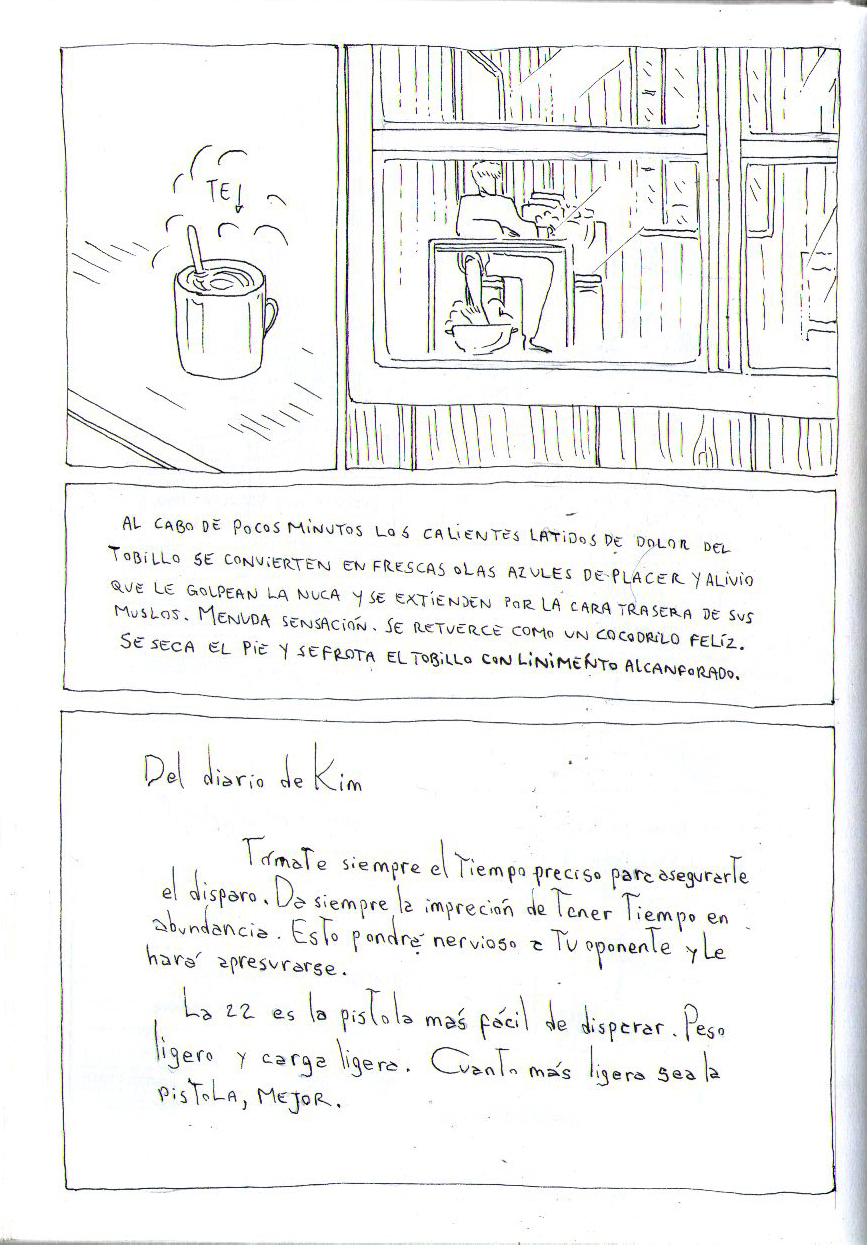 TE
AL CABO DE POCOS MINUTOS LOS CALIENTES LATIDOS DE DOLOR DEL
TOBILLO SE CONVIERTEN EN FRESCAS OLAS AZULES DE PLACER Y ALIVIO
QUE LE GOLPEAN LA NUCA Y SE EXTIENDEN POR LA CARA TRASERA DE SUS
MUSLOS. MENUDA SENSACIÓN. SE RETUERCE COMO UN COCODRILO FELÍZ.
SE SECA EL PIE Y SE FROTA EL TOBILLO CON LINIMENTO ALCANFORADO.
Del diario de Kim
Tómate siempre el Tiempo preciso para asegurarte
el disparo. Da siempre la impreción de Tener Tiempo en
abundancia. Esto pondrá nervioso a Tu oponente y Le
hará apresurarse.
La 22 es la pistola más fácil de disparar. Peso
ligero y carga ligera. Cuanto más ligera sea la
PISTOLA, MEJOR.